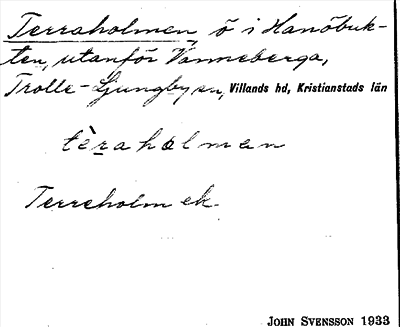 Terraholmen, ö i Hanöbuk-
ten, utanför Vanneberga,
Trolle-Ljungby sn, Villands hd, Kristianstads län
tèraholmen
Terreholm ek.
JOHN SVENSSON 1933